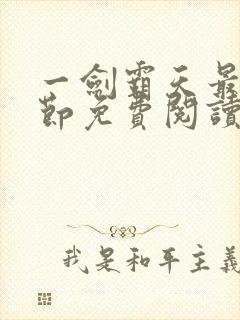 一劍霸天最
節免費閱讀
我是和平主義